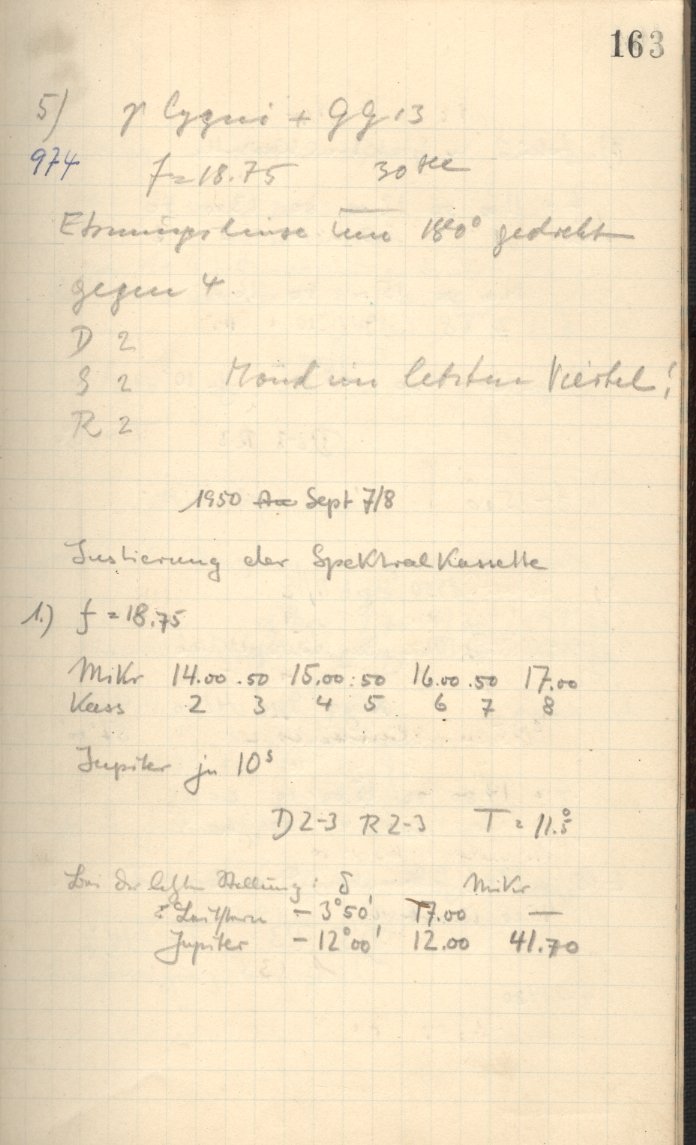 163
5) γ Cygni + GG 13
974 f = 18.75 30 sec
um 180° gedreht
gegen 4.
D 2
S 2 Mond im letzten Viertel!
R 2
1950 Sept 7/8
Justierung der Spektralkassette
1.) f = 18.75
Mikr 14.00 .50 15.00 .50 16.00 .50 17.00
Kass 2 3 4 5 6 7 8
Jupiter je 10s
D 2-3 R 2-3 T = 11.°5
Bei der letzten Stellung: δ Mikr
Leitstern - 3°50' 17.00 —
Jupiter - 12°00' 12.00 41.70